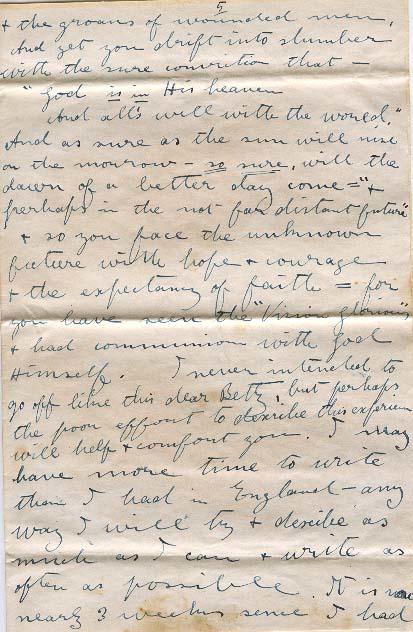 5
& the groans of wounded men,
And yet you drift into slumber
with the sure conviction that –
"God is in His heaven
And all's well with the world."
And as sure as the sun will rise
on the morrow – so sure, will the
dawn of a better day come – "&
perhaps in the not far distant future"
& so you face the unknown
future with hope & courage
& the expectancy of faith = for
you have seen the "Vision glorious"
& had communion with God
Himself. I never intended to
go off like this dear Betty, but perhaps
the poor effort to describe this experience
will help & comfort you. I may
have more time to write
than I had in England – any
way I will try & describe as
much as I can & write as
often as possible. It is now
nearly 3 weeks since I had